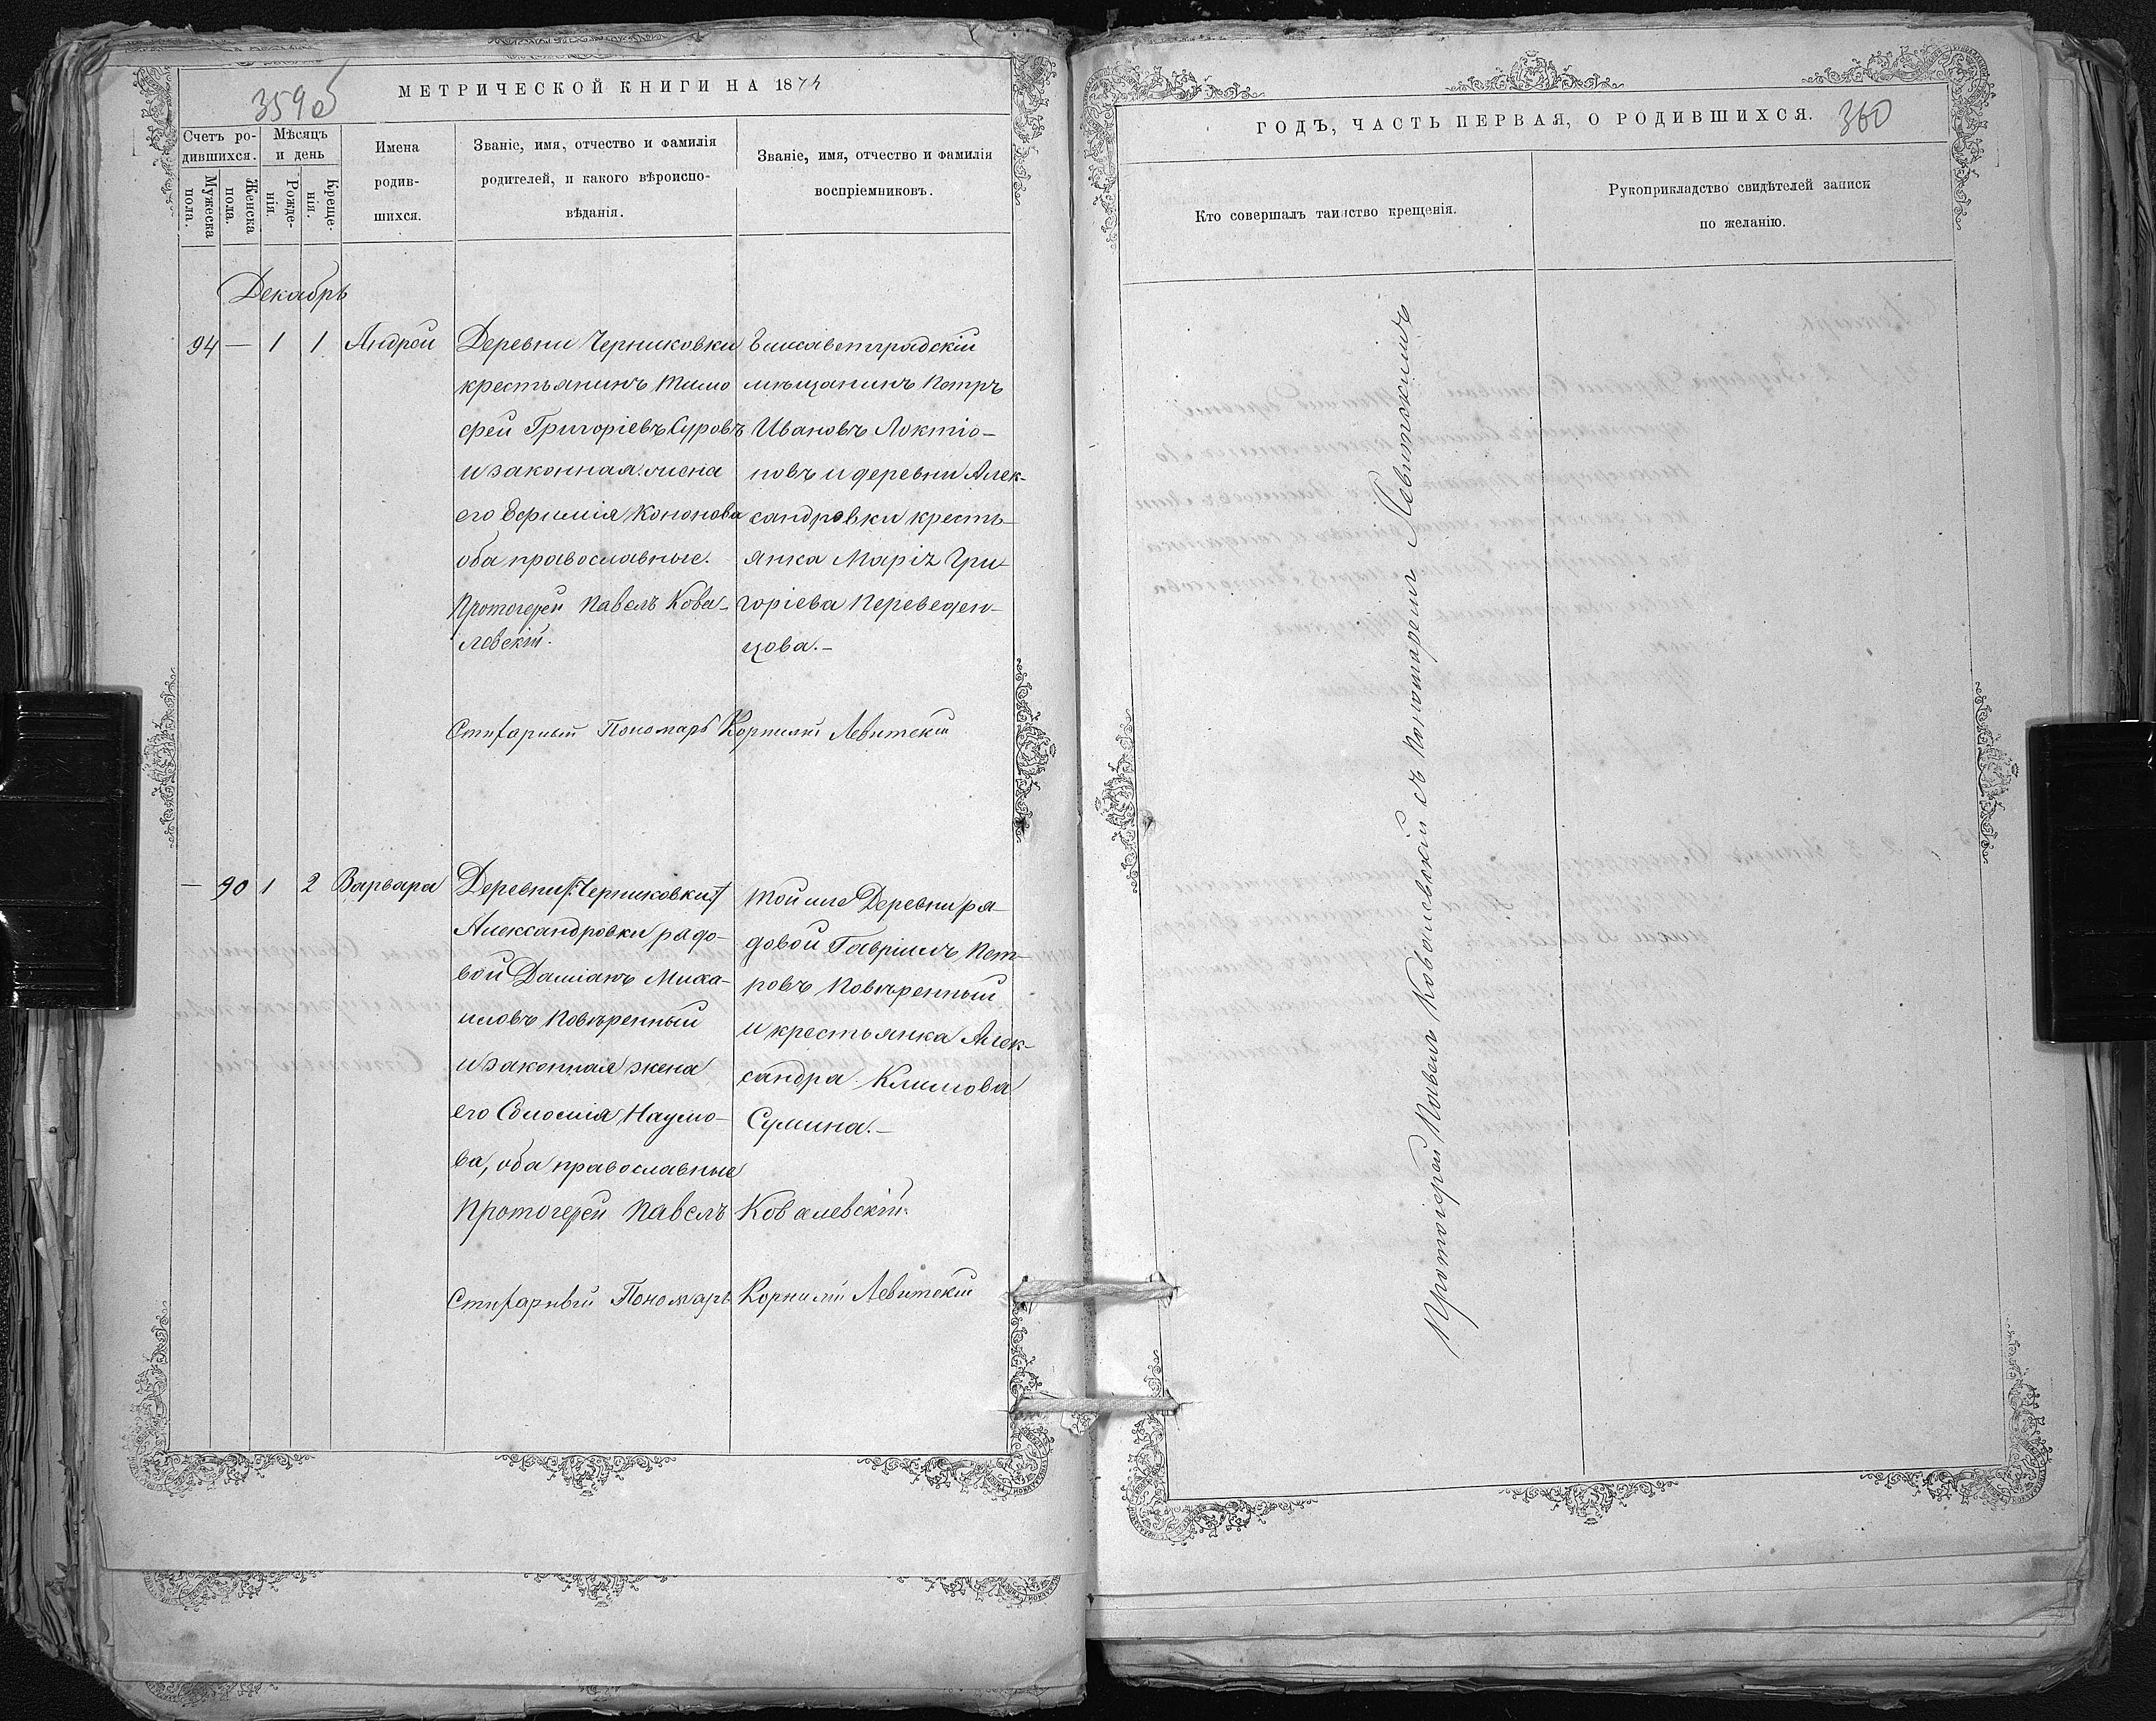 359об
МЕТРИЧЕСКОЙ КНИГИ НА 1874
Счетъ ро-
дившихся.
Мужеска
пола.
Женска
пола.
Мѣсяцъ
и день
Рожде-
нія.
Креще-
нія.
Имена
родив-
шихся.
Званіе, имя, отчество и фамилія
родителей, и какого вѣроиспо-
вѣданія.
Званіе, имя, отчество и фамилія
воспріемниковъ.
Декабрь
94 — 1 1 Андрей
Деревни Черниковки
крестьянинъ Тимо
фей Григоріевъ Суровъ
и законная жена
его Ефимія Кононова
оба православные.
Протоіерей Павелъ Кова-
левскій.
Елисаветградскій
мѣщанинъ Петръ
Ивановъ Локтіо-
новъ и деревни Алек-
сандровки кресть-
янка Марія Гри-
горіева Переведен-
цова.—
Стихарный Пономарь Корнилій Левитскій
— 90 1 2 Варвара
Деревни /:Черниковки:/
Александровки рядо-
вой Даміанъ Миха-
иловъ Повѣренный
и законная жена
его Соломія Наумо-
ва, оба православные
той же Деревни ря-
довой Гавріилъ Пет-
ровъ Повѣренный
и крестьянка Алек-
сандра Климова
Сумина.—
Протоіерей Павелъ Ковалевскій.
Стихарный Пономарь Корнилій Левитскій
ГОДЪ, ЧАСТЬ ПЕРВАЯ, О РОДИВШИХСЯ.
360
Кто совершалъ таинство крещенія.
Рукоприкладство свидѣтелей записи
по желанію.
Протоіерей Павелъ Ковалевскій съ Пономаремъ Левитскимъ